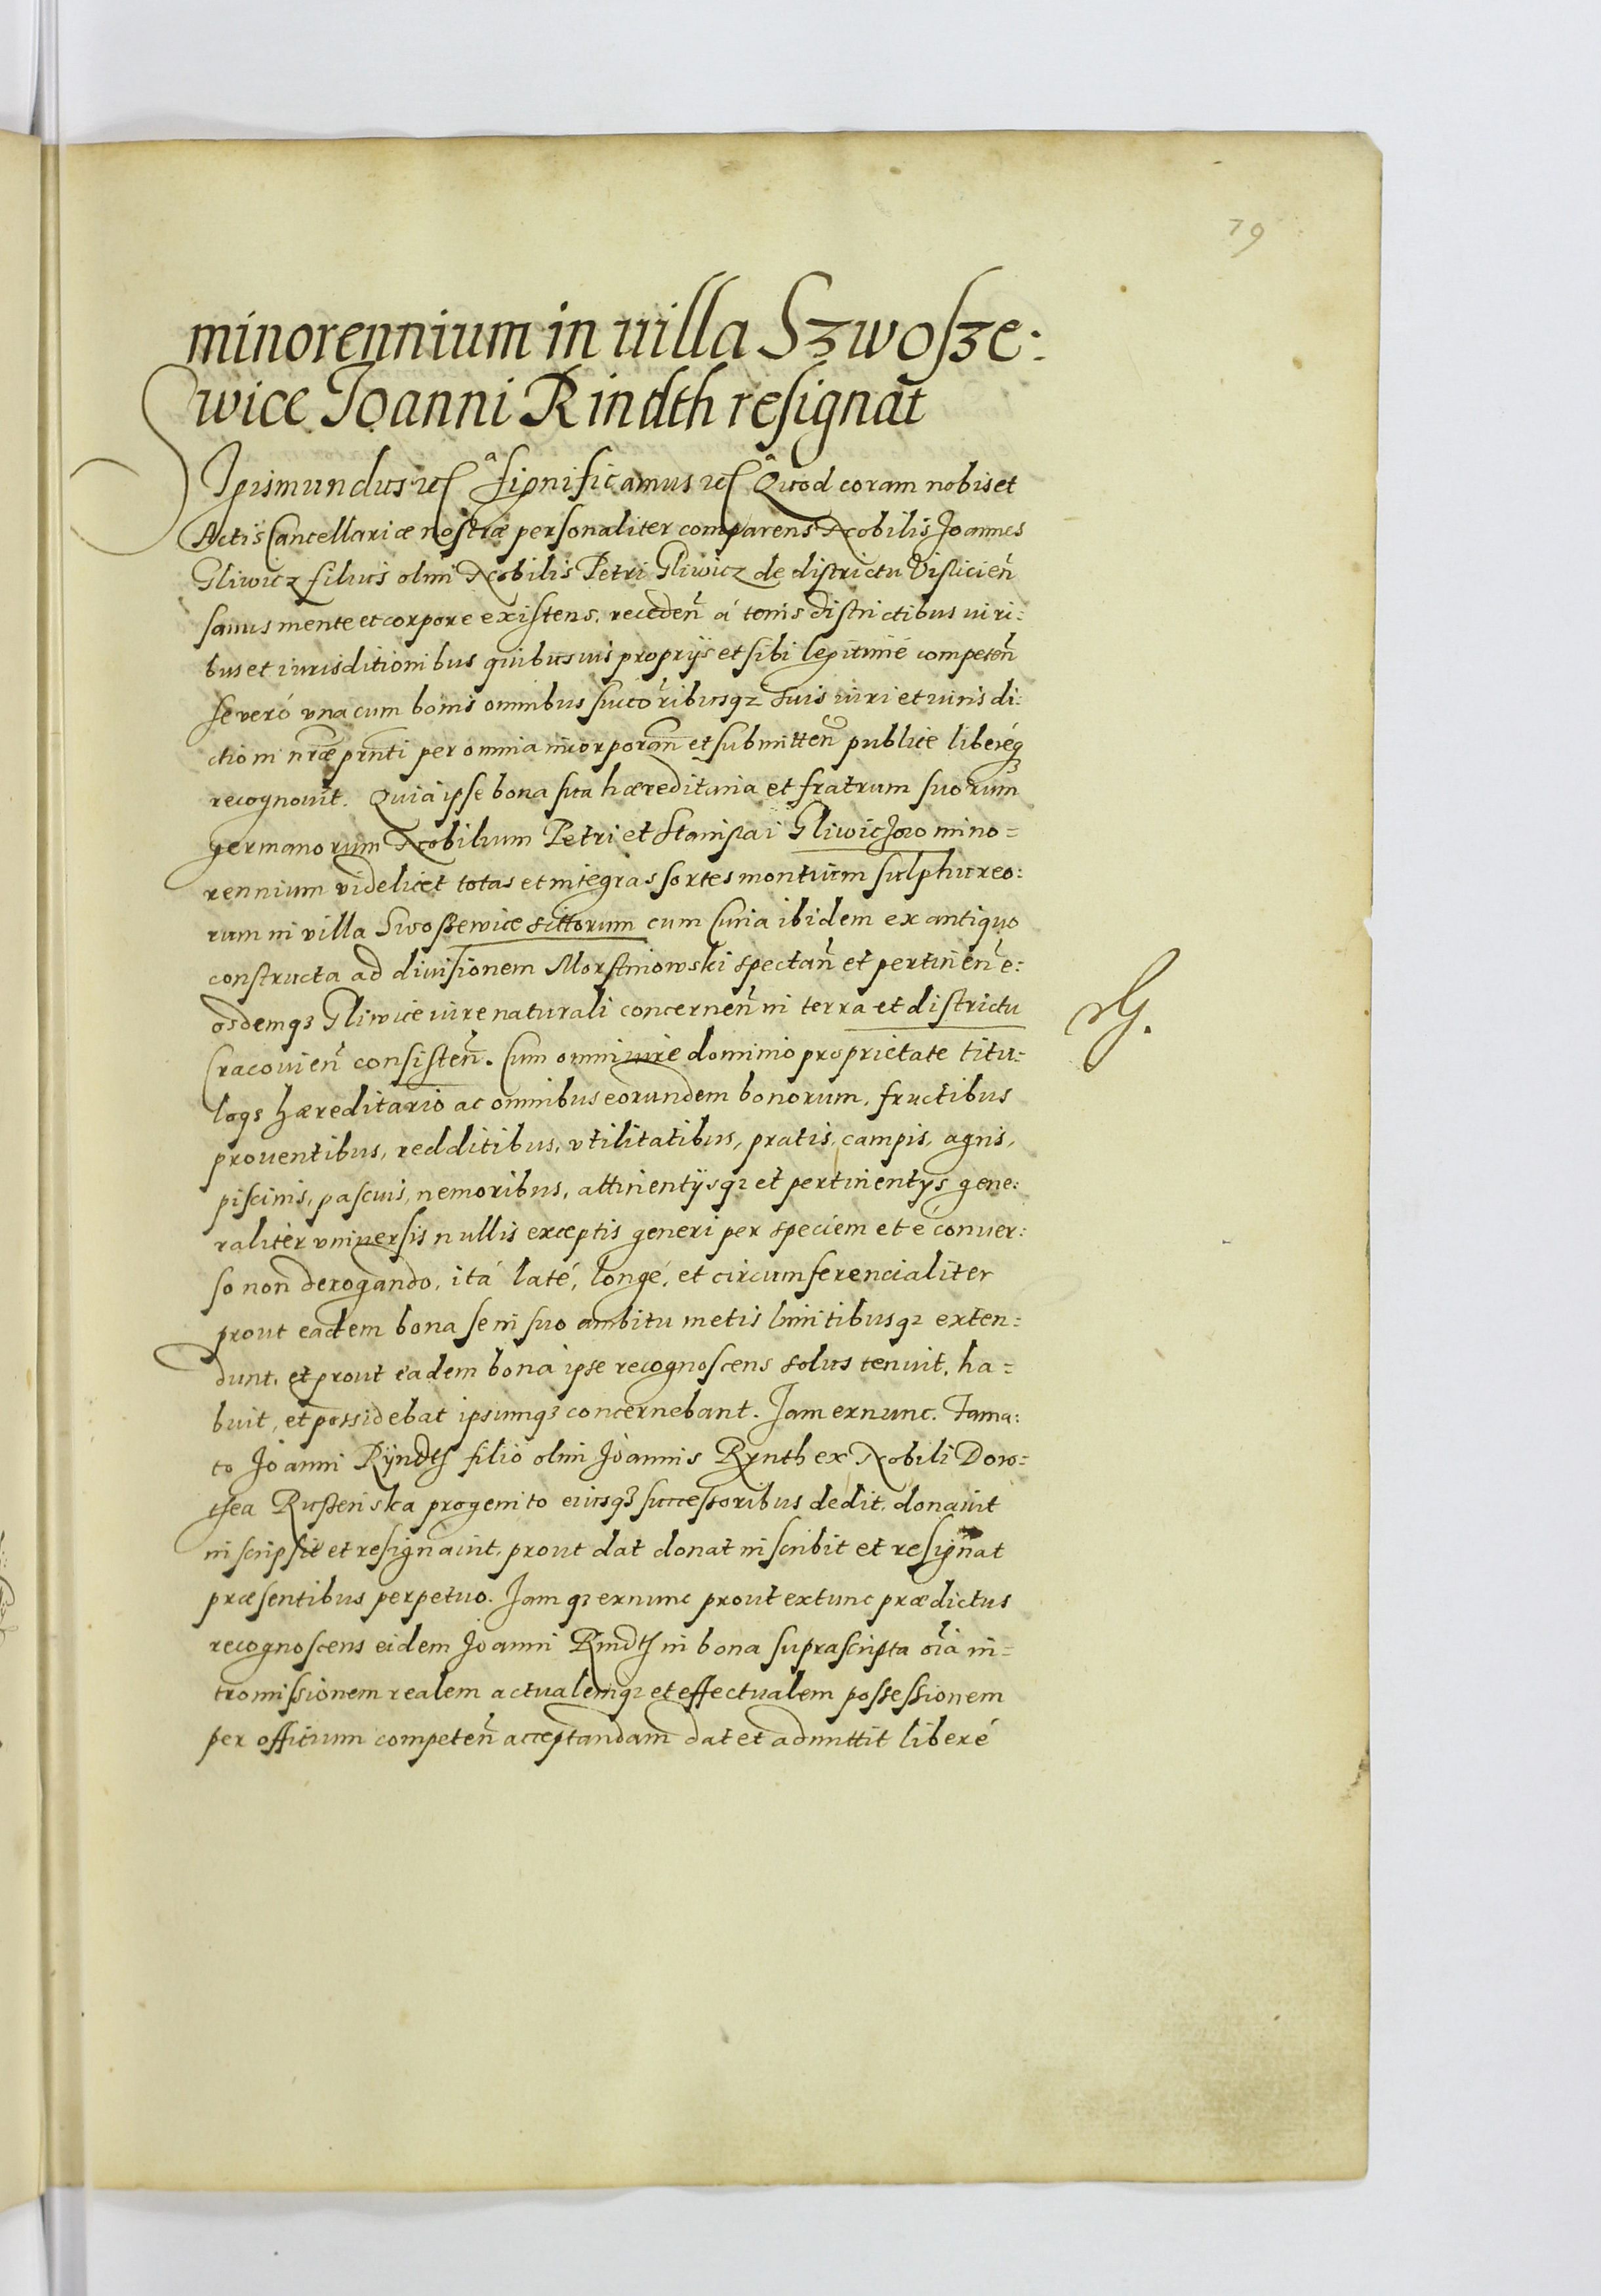 79
minorennium in uilla Szwosze:
wice Joanni Rindth resignat
Sigismundus etc Significamus etc Quod coram nobis et
Actis Cancellariæ nostræ personaliter comparens Nobilis Joannes
Gliwicz filius olim Nobilis Petri Gliwicz de districtu Vislicien̄
sanus mente et corpore existens, receden̄ á terris districtibus iuri:
bus et iurisditionibus quibusuis proprijs et sibi legitimé competen̄
se veró vna cum bonis omnibus succ̄oribusqz suis iuri et iuris di:
ctioni nr̄æ prn̄ti per omnia incorporan̄ et submitten̄ publice liberéqz
recognouit. Quia ipse bona sua hæreditaria et fratrum suorum
germanorum Nobilium Petri et Stanislai Gliwiczow mino=
rennium videlicet totas et integras sortes montium sulphureo:
rum in villa Swoszewice sittorum cum Curia ibidem ex antiquo
constructa ad diuisionem Morstinowski spectan̄ et pertinen̄ e:
osdemqz Gliwice iure naturali concernen̄ in terra et districtu
Cracouien̄ consisten̄. Cum omni iure dominio proprietate titu:
loqz hæreditario ac omnibus eorundem bonorum, fructibus
prouentibus, redditibus, vtilitatibus, pratis, campis, agris,
piscinis, pascuis, nemoribus, attinentijsqz et pertinentys gene:
raliter vniuersis nullis exceptis generi per speciem et é conuer:
so non derogando, itá laté, longé, et circumferencialiter
prout eadem bona se in suo ambitu metis limitibusqz exten:
dunt, et prout eadem bona ipse recognoscens solus tenuit, ha=
buit, et possidebat ipsumqz concernebant. Jam exnunc. Fama:
to Joanni Rÿndth filio olim Joannis Rynth ex Nobili Doro:
thea Ruszenska progenito eiusqz successoribus dedit, donauit
inscripsit et resignauit, prout dat donat inscribit et resignat
præsentibus perpetuo. Jam qz exnunc prout extunc prædictus
recognoscens eidem Joanni Rindth in bona suprascripta oīa in=
tromissionem realem actualemqz et effectualem possessionem
per officium competen̄ acceptandam dat et admittit liberé